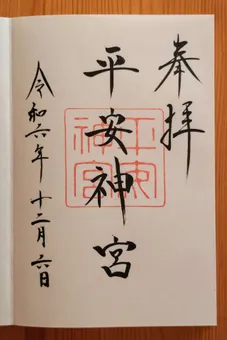 奉拝
平安神宮
令和六年十二月六日
平安神宮